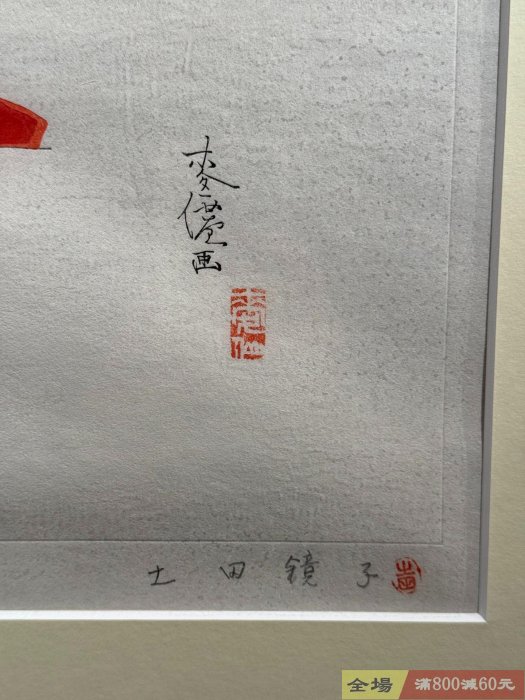 麥僊画
麦仙
土田鏡子
全場 滿800減60元